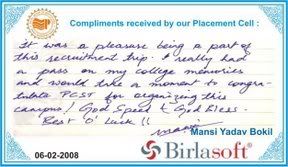 Compliments received by our Placement Cell :
It was a pleasure being a part of
this recruitment trip. I really had
a pass on my college memories
and would take a moment to congra-
tulate PCST for organizing this
campus! God Speed & God Bless.
Best 'O' Luck !!
Mansi Yadav Bokil
06-02-2008
Birlasoft